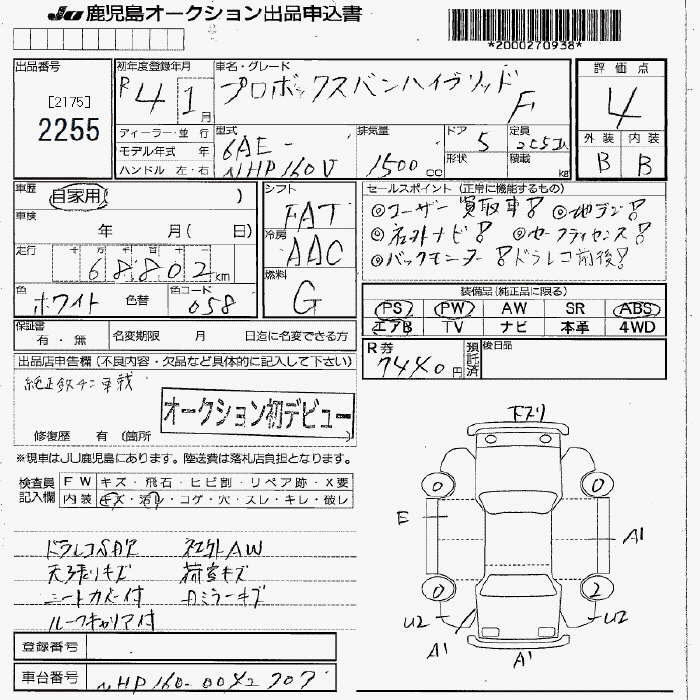 JU 鹿児島オークション出品申込書
*2000270938*
出品番号
[2175]
2255
初年度登録年月
R4 1月
車名・グレード
プロボックスバンハイブリッド
F
評価点
4
外装 内装
B B
ディーラー・並 行
モデル年式 年
ハンドル 左・右
型式
6AE-
NHP160V
排気量
1500cc
ドア
5
形状
定員
積載
kg
車歴
自家用
)
車検
年 月( 日)
走行
十 万 千 百 十
68802km
色
ホワイト
色替
色コード
058
シフト
FAT
冷房
AAC
燃料
G
セールスポイント (正常に機能するもの)
◎ユーザー買取車! ◎地デジ!
◎社外ナビ! ◎セーフティセンス!
◎バックモニター!ドラレコ前後!
装備品(純正品に限る)
PS PW AW SR ABS
エアB TV ナビ 本革 4WD
保証書
有・無
名変期限 月 日迄に名変できる方
R券
7440円
預託済
後日品
出品店申告欄(不良内容・欠品など具体的に記入して下さい)
純正鉄チン車載
オークション初デビュー
修復歴 有 (箇所 )
※現車はJU鹿児島にあります。陸送費は落札店負担となります。
検査員
記入欄
FW キズ・飛石・ヒビ割・リペア跡・X要
内装 キズ・汚レ・コゲ・穴・スレ・キレ・破レ
ドラレコSD欠 社外AW
天張りキズ 荷室キズ
シートカバー付 Rミラーキズ
ルーフキャリア付
下マワリ
0 0
E
A1
0 2
U2 U2
A1 A1
登録番号
車台番号
NHP160-0042707